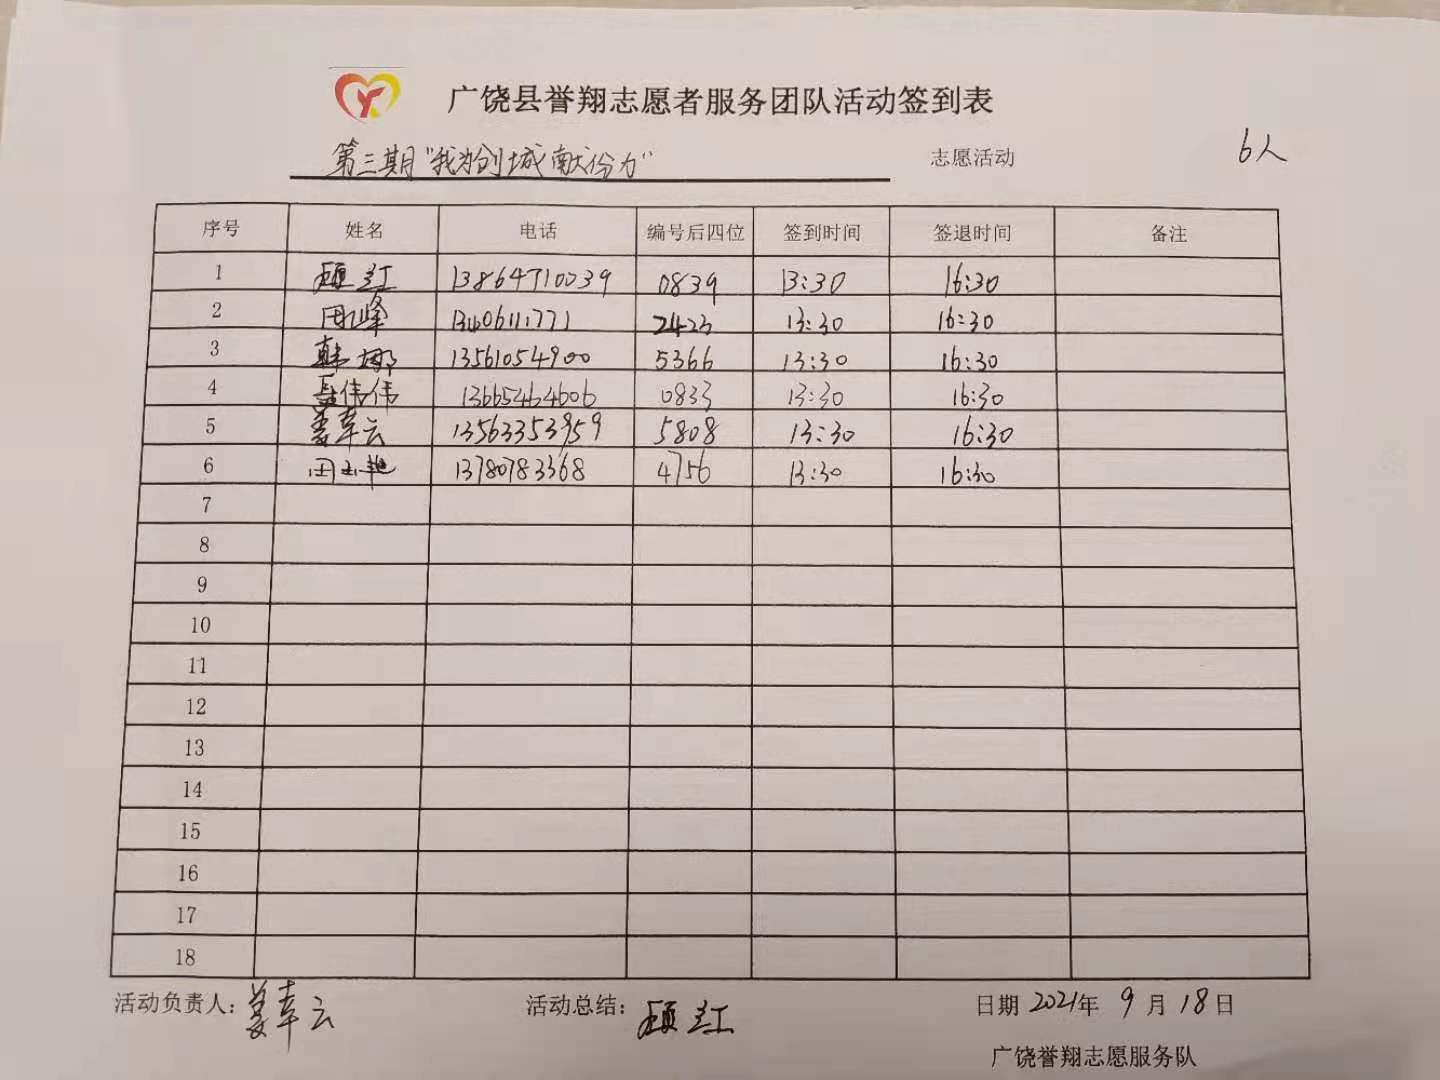 广饶县誉翔志愿者服务团队活动签到表
第三期"我为创城献份力" 志愿活动 6人
序号 姓名 电话 编号后四位 签到时间 签退时间 备注
1 顾红 13864710039 0839 13:30 16:30
2 周峰 13406111771 2423 13:30 16:30
3 韩娜 13561054900 5366 13:30 16:30
4 岳伟伟 13665464606 0833 13:30 16:30
5 姜幸云 13563353959 5808 13:30 16:30
6 田玉艳 13780783368 4756 13:30 16:30
7
8
9
10
11
12
13
14
15
16
17
18
活动负责人：姜幸云 活动总结：顾红 日期 2021年 9月 18日
广饶誉翔志愿服务队